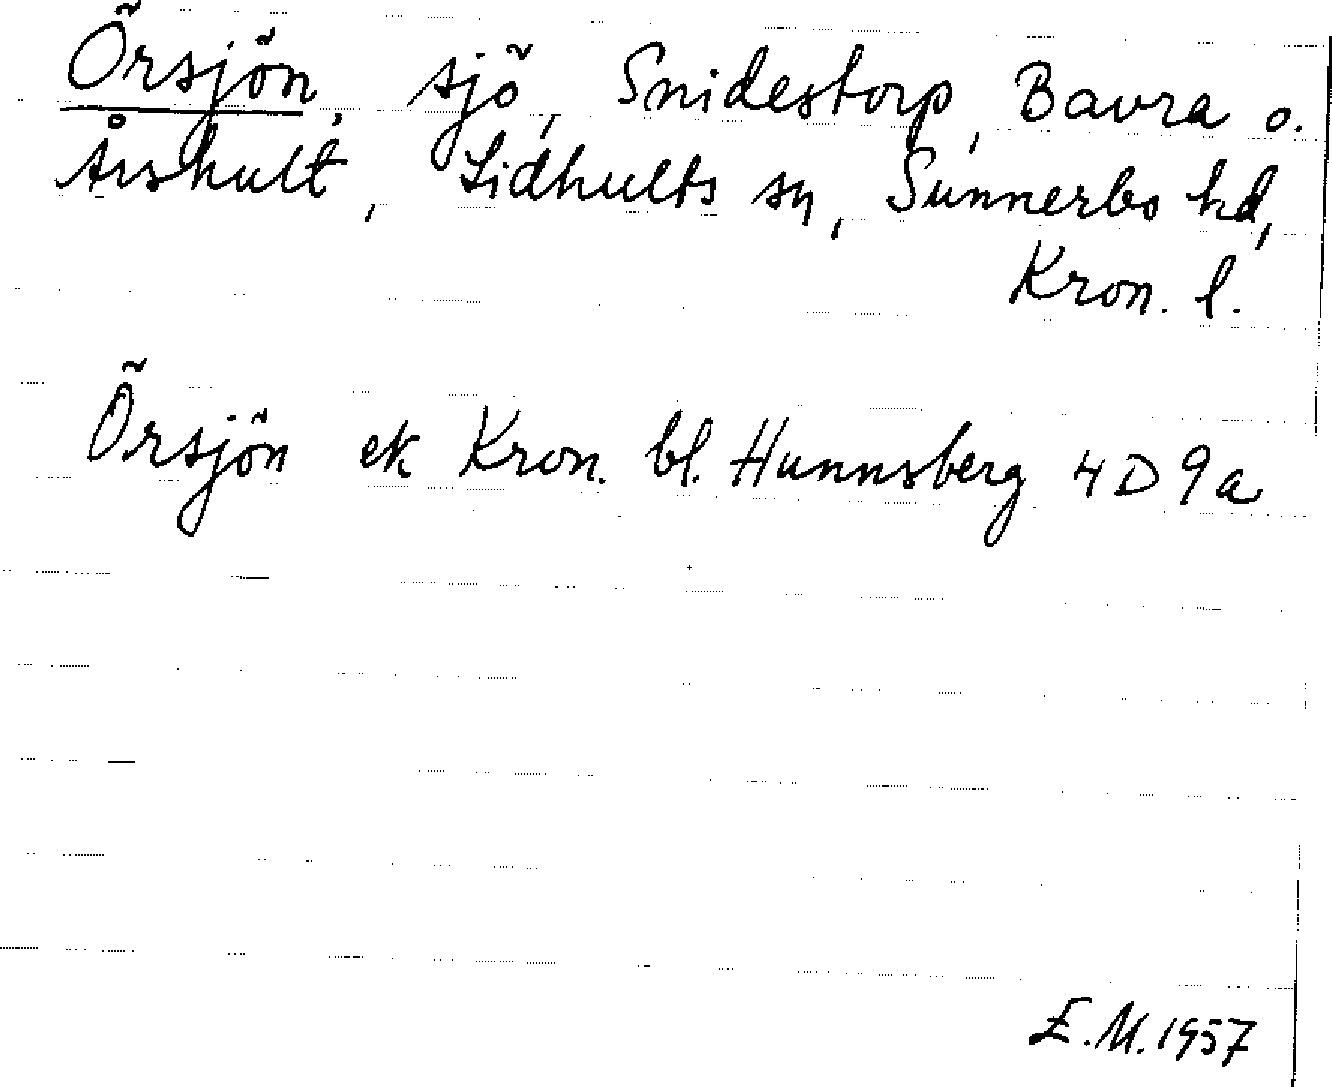 Örsjön, sjö, Snidestorp, Bavra o.
Årshult, Lidhults sn, Sunnerbo hd,
Kron. l.
Örsjön ek Kron. bl. Hunnsberg 4D9a
E.M. 1957